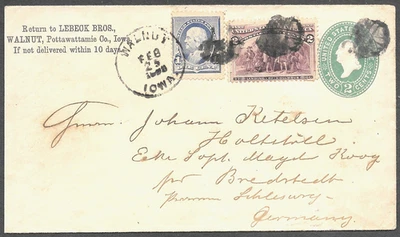 Return to LEBECK BROS.,
WALNUT, Pottawattamie Co., Iowa,
If not delivered within 10 days.
WALNUT
FEB
IOWA
UNITED STATES
TWO 2 CENTS
Johann Ketelsen
Holtstill
Eeke Sopt. Magd Koog
per Bredstedt
Schleswig
Germany